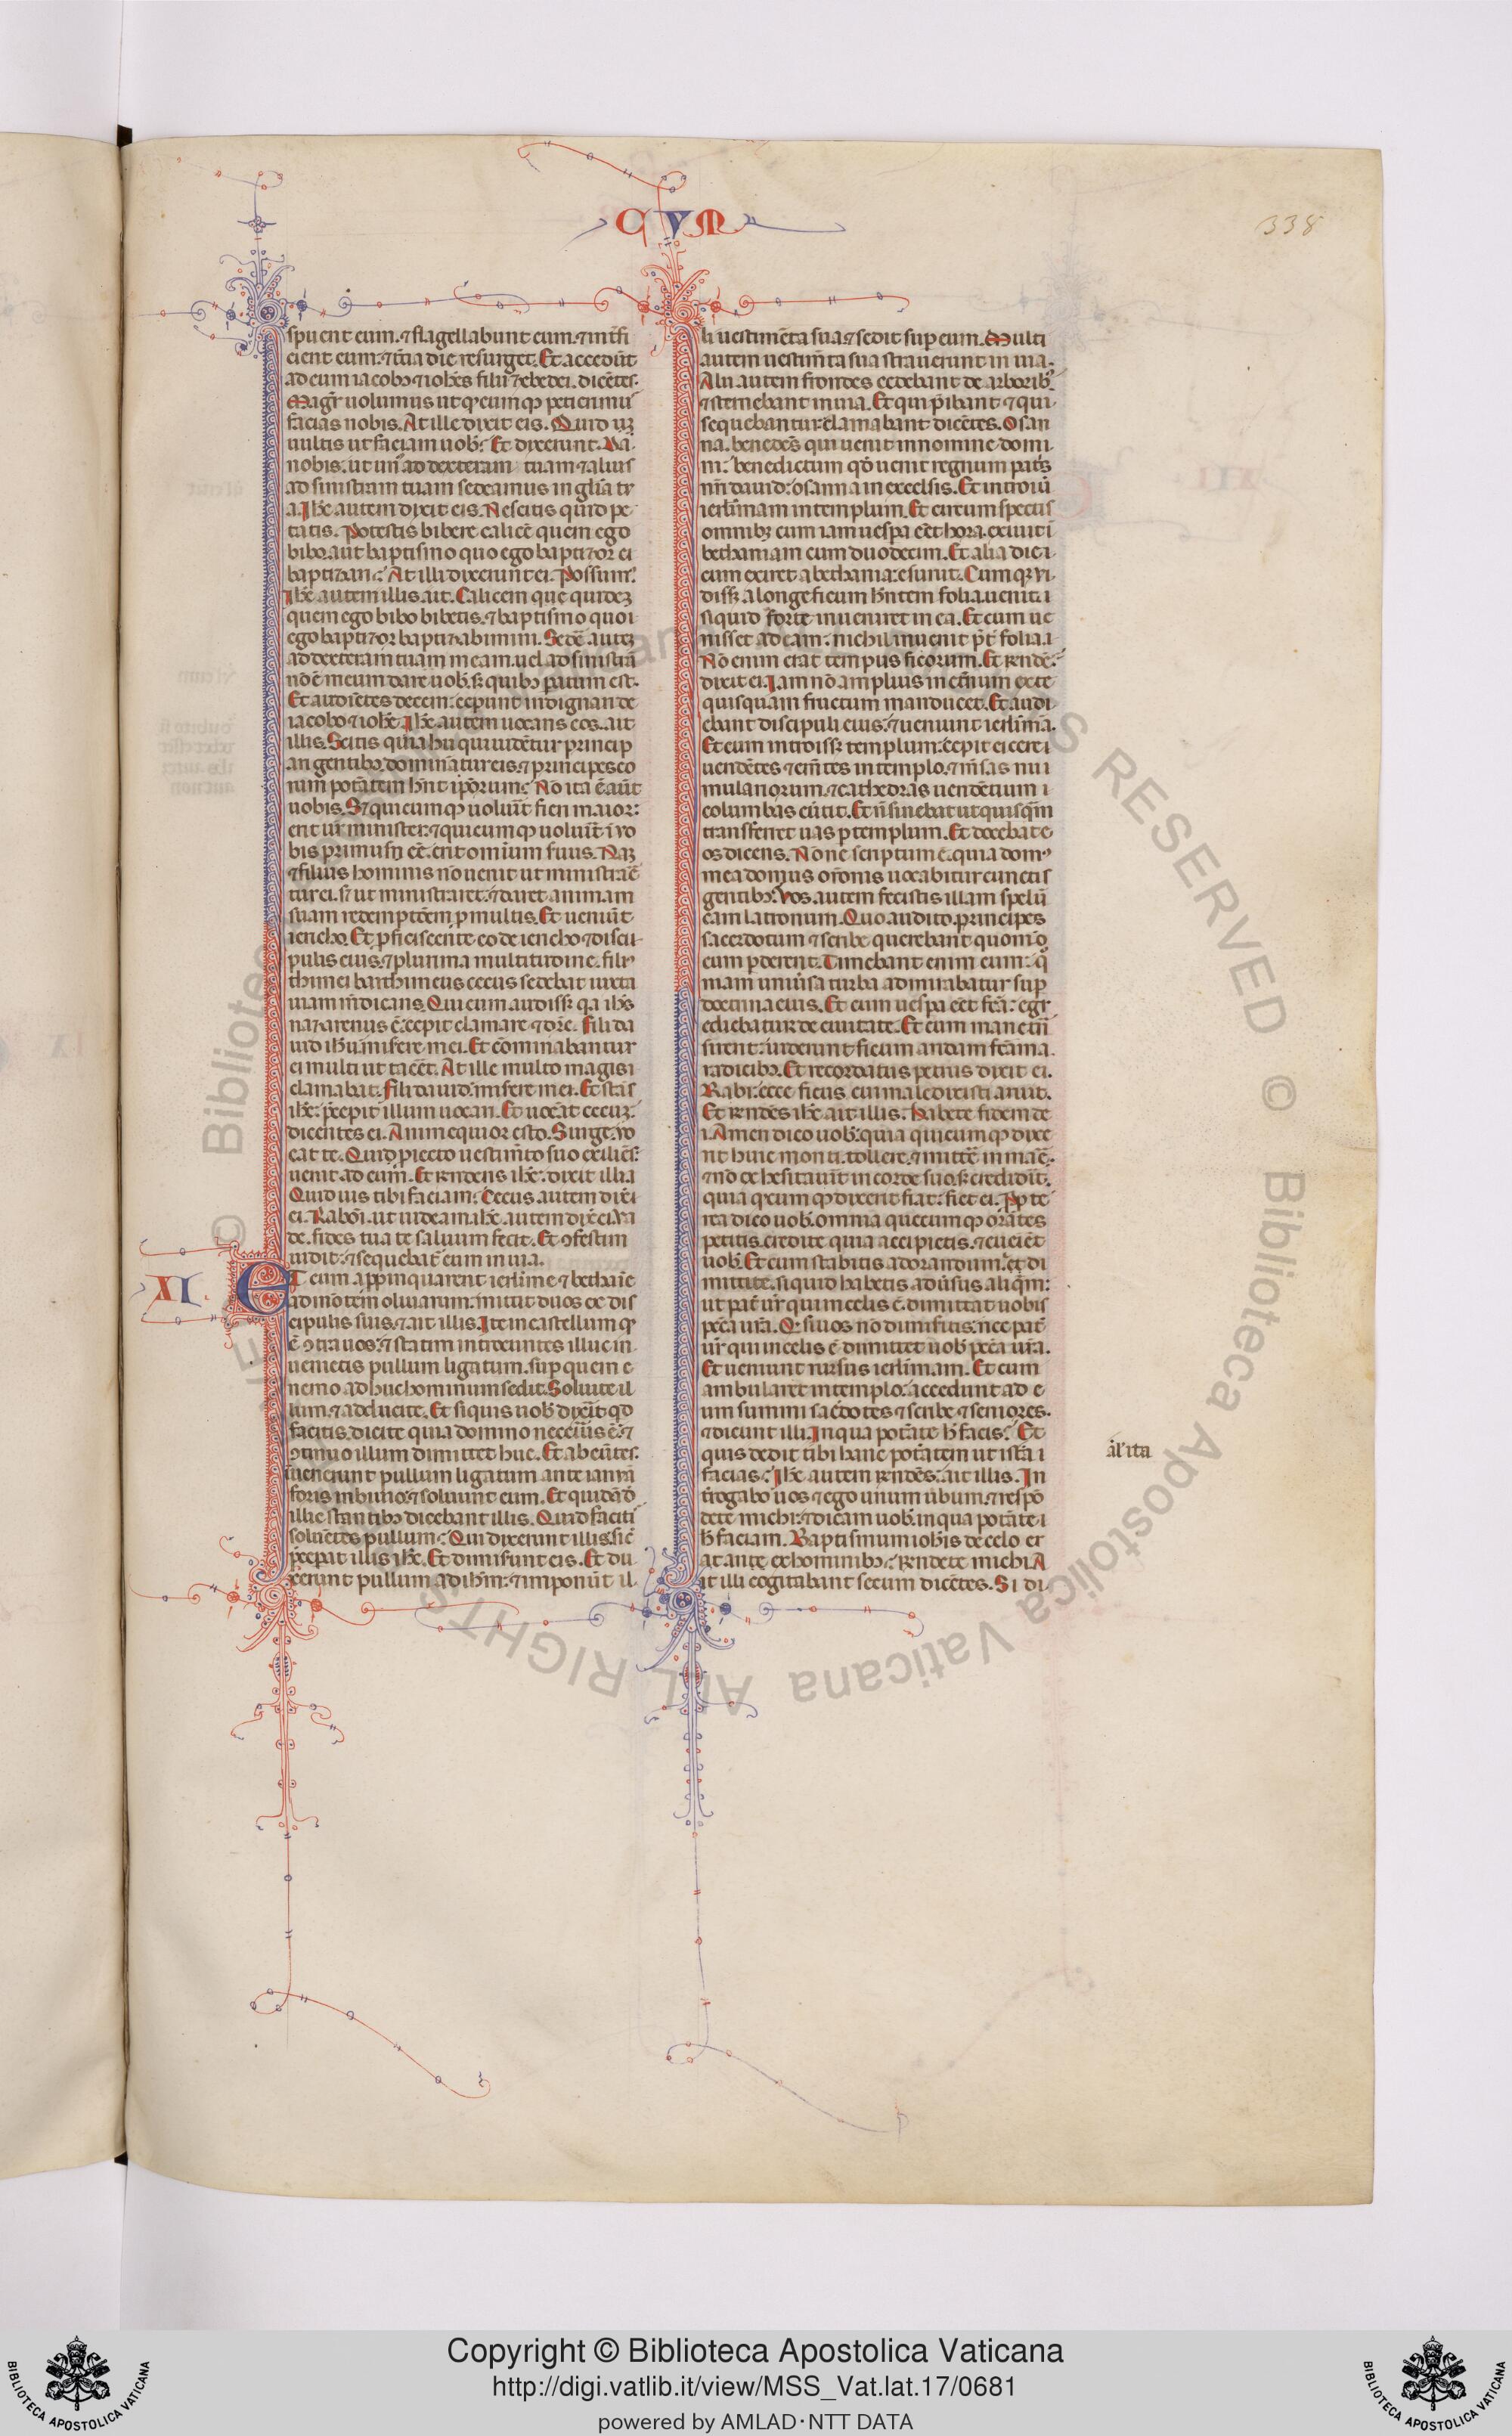 CVM
338
spuent eum. ⁊ flagellabunt eum. ⁊ int̄fi
cient eum: ⁊ t̄cia die resurget. Et accedūt
ad eum iacobꝰ ⁊ ioħes filii ⁊ebedei. dicētes.
Magr̄ uolumus ut qͥcumqꝫ petierimuˢ
facias nobis. At ille dixit eis. Quid uꝫ
uultis ut faciam uob̄? Et dixerunt. Da
nobis. ut unꝰ ad dexteram tuam ⁊ alius
ad sinistram tuam sedeamus in gl̄ia tu
a. Iħc autem dixit eis. Nescitis quid pe
tatis. Potestis bibere calicē quem ego
bibo. aut baptismo quo ego baptizor
baptizari? At illi dixerunt ei. Possumꝰ.
Iħc autem illis ait. Calicem que quideꝫ
quem ego bibo bibetis. ⁊ baptismo quo
ego baptizor baptizabimini. Sedē auteꝫ
ad dexteram tuam meam. uel ad sinistrā
nō ē meum dare uob̄. sꝫ quibꝰ paratum est.
Et audiētes decem: cepunt indignari de
iacobo ⁊ ioħe. Iħc autem uocans eos. ait
illis. Scitis quia hii qui uidētur princip
ari gentibꝰ. dominātur eis. ⁊ principes eo
rum potātem hn̄t ip̄orum? Nō ita ē aūt
uobis. Sꝫ quicumqꝫ uoluūt fieri maior:
erit ur̄ minister. ⁊ quicumqꝫ uoluīt ī uo
bis primus eē. erit omnium suus. Naꝫ
⁊ filius hominis nō uenit ut ministrarē
tur ei. sꝫ ut ministraret. ⁊ daret animam
suam redemptōem ꝓ multis. Et ueniūt
iericho. Et ꝓficiscente eo de iericho ⁊ disci
pulis eius. ⁊ plurima multitudine. filiꝰ
thimei barthimeus cecus sedebat iuxta
uiam m̄dicans. Qui cum audissꝫ qa iħs
nazarenus ē: cepit clamare ⁊ dr̄e. Fili da
uid iħu miserere mei. Et cōminabantur
ei multi ut tacēt. At ille multo magis
clamabat. Fili dauid miserere mei. Et stās
iħc: p̄cepit illum uocari. Et uocāt cecuꝫ:
dicentes ei. Animequior esto. Surge. uo
cat te. Quid ꝓiecto uestim̄to suo exiliēs
uenit ad eum. Et rn̄dens iħc: dixit illi
Quid uis tibi faciam? Cecus autem dixī
ei. Rabōi. ut uideam. iħc autem dix̄ ei. Va
de. fides tua te saluum fecit. Et ꝯfestim
uidit: ⁊ sequebat̄ eum in uia.
XI. ET cum appinquarent ierl̄ime ⁊ bethaīe
ad mōtem oliuarum. mittit duos ex dis
cipulis suis. ⁊ ait illis. Ite in castellum qͩ
ē ꝯtra uos: ⁊ statim introeuntes illuc in
uenietis pullum ligatum. suꝑ quem
nemo adhuc hominum sedit. Soluite il
lum. ⁊ adducite. Et si quis uob̄ dixerit qd
facitis. dicite quia domino necc̄ius ē. ⁊
ꝯtinuo illum dimittet huc. Et abeūtes.
īuenerunt pullum ligatum ante ianuā
foris in biuio. ⁊ soluunt eum. Et quidā d̄
illic stantibꝰ dicebant illis. Quid faciti
soluētes pullum? Qui dixerunt illis. sic̄
p̄cepat illis iħc. Et dimiserunt eis. Et du
xerunt pullum ad iħm: ⁊ imponūt il
li uestimēta sua ⁊ sedit suꝑ eum. Multi
autem uestim̄ta sua strauerunt in uia.
Alii autem frondes cedebant de arboribꝰ
⁊ sternebant in uia. Et qui p̄ibant ⁊ qui
sequebantur: clamabant dicētes. Osan
na. benedcs̄ qui uenit in nomine domi
ni: benedictum qd̄ uenit regnum patˢ
nr̄i dauid: osanna in excelsis. Et introiū
ierl̄imam in templum. Et circum spectis
omnibꝫ cum iam uespa eēt hora. exiuit ī
bethaniam cum duodecim. Et alia die
cum exiret a bethania: esuriit. Cumqꝫ ui
dissꝫ a longe ficum hn̄tem folia. uenit
si quid forte inueniret in ea. Et cum ue
nisset ad eam: nichil inuenit p̄t̄ folia.
Nō enim erat tempus ficorum. Et rn̄dē
dixit ei. Iam nō amplius in et̄num ex te
quisquam fructum manducet. Et audi
ebant discipuli eius. ⁊ ueniunt ierl̄ima.
Et cum introissꝫ templum: cepit eicere
uendētes ⁊ em̄tes in templo. ⁊ m̄sas nu
mulariorum. ⁊ cathedras uendētium
columbas eūtit. Et n̄ sinebat ut quisqm̄
transferret uas ꝑ templum. Et docebat e
os dicens. Nonne scriptum ē. quia domꝰ
mea domus or̄onis uocabitur cunctis
gentibꝰ. Vos autem fecistis illam spelū
cam latronum. Quo audito. principes
sacerdotum ⁊ scribe querebant quomō
eum ꝑderent. Timebant enim eum: qm̄
niam uniūsa turba admirabatur suꝑ
doctrina eius. Et cum uespa eēt fcā: egr
ediebatur de ciuitate. Et cum mane tn̄
sirent: uiderunt ficum aridam fc̄am a
radicibꝰ. Et recordatus petrus dixit ei.
Rabi. ecce ficus cui maledixisti aruit.
Et rn̄dēs iħc ait illis: habete fidem de
i. Amen dico uob̄. quia quicumqꝫ dixe
rit huic monti. tollere. ⁊ mittē in maē.
⁊ nō hesitauīt in corde suo. sꝫ credidīt.
quia qͥcumqꝫ dixerit fiat: fiet ei. Ppte
rea dico uob̄. omnia quecumqꝫ orātes
petitis. credite quia accipietis. ⁊ euēiēt
uob̄. Et cum stabitis ad orandum. di
mittite. siquid habetis adūsus aliqm̄:
ut pat̄ ur̄ qui in celis ē. dimittat uobis
pc̄ca ur̄a. Qͩ si uos nō dimisitis. nec pat̄
ur̄ qui in celis ē dimittet uob̄ pc̄ca ur̄a.
Et ueniunt rursus ierl̄imam. Et cum
ambularet in templo: accedunt ad e
um summi sac̄dotes ⁊ scribe ⁊ seniores.
⁊ dicunt illi. In qua potāte h̄ facis? Et
quis dedit tibi hanc potātem ut ista
facias? Iħc autem rn̄dēs: ait illis. In
t̄rogabo uos ⁊ ego unum ūbum. ⁊ respō
dete michi: ⁊ dicam uob̄. in qua potāte
h̄ faciam. Baptismum ioħis de celo er
at an te ex hominibꝰ? Rn̄dete michi. A
it illi cogitabant secum dicētes. Si di
al̄ ita
Copyright © Biblioteca Apostolica Vaticana
http://digi.vatlib.it/view/MSS_Vat.lat.17/0681
powered by AMLAD·NTT DATA
BIBLIOTECA APOSTOLICA VATICANA
BIBLIOTECA APOSTOLICA VATICANA
© Biblioteca Apostolica Vaticana ALL RIGHTS RESERVED